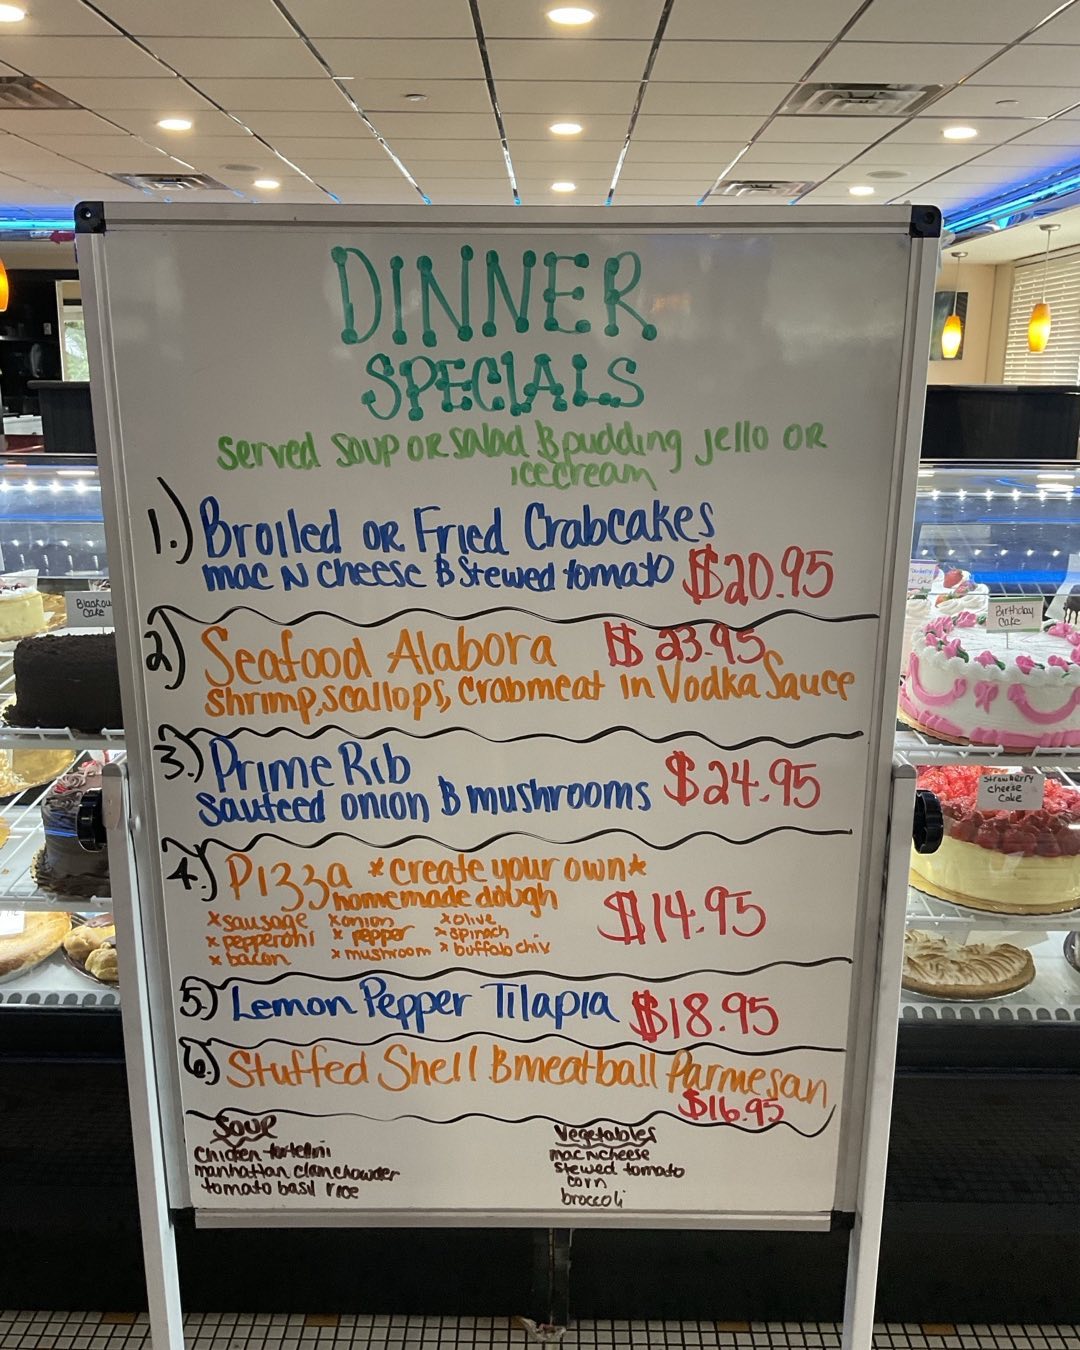 DINNER
SPECIALS
Served Soup OR Salad & pudding jello OR
icecream
1.) Broiled OR Fried Crabcakes
mac N cheese & stewed tomato $20.95
2) Seafood Alabora $23.95
shrimp, scallops, crabmeat in Vodka Sauce
3.) Prime Rib
sauteed onion & mushrooms $24.95
4.) Pizza *create your own*
homemade dough
$14.95
x sausage x onion x olive
x pepperoni x pepper x spinach
x bacon x mushroom x buffalo chix
5.) Lemon Pepper Tilapia $18.95
6.) Stuffed Shell & meatball Parmesan
$16.95
Soup
Chicken tortellini
manhattan clam chowder
tomato basil rice
Vegetables
mac N cheese
stewed tomato
corn
broccoli
Blackout
Cake
Birthday
Cake
Strawberry
cheese
Cake